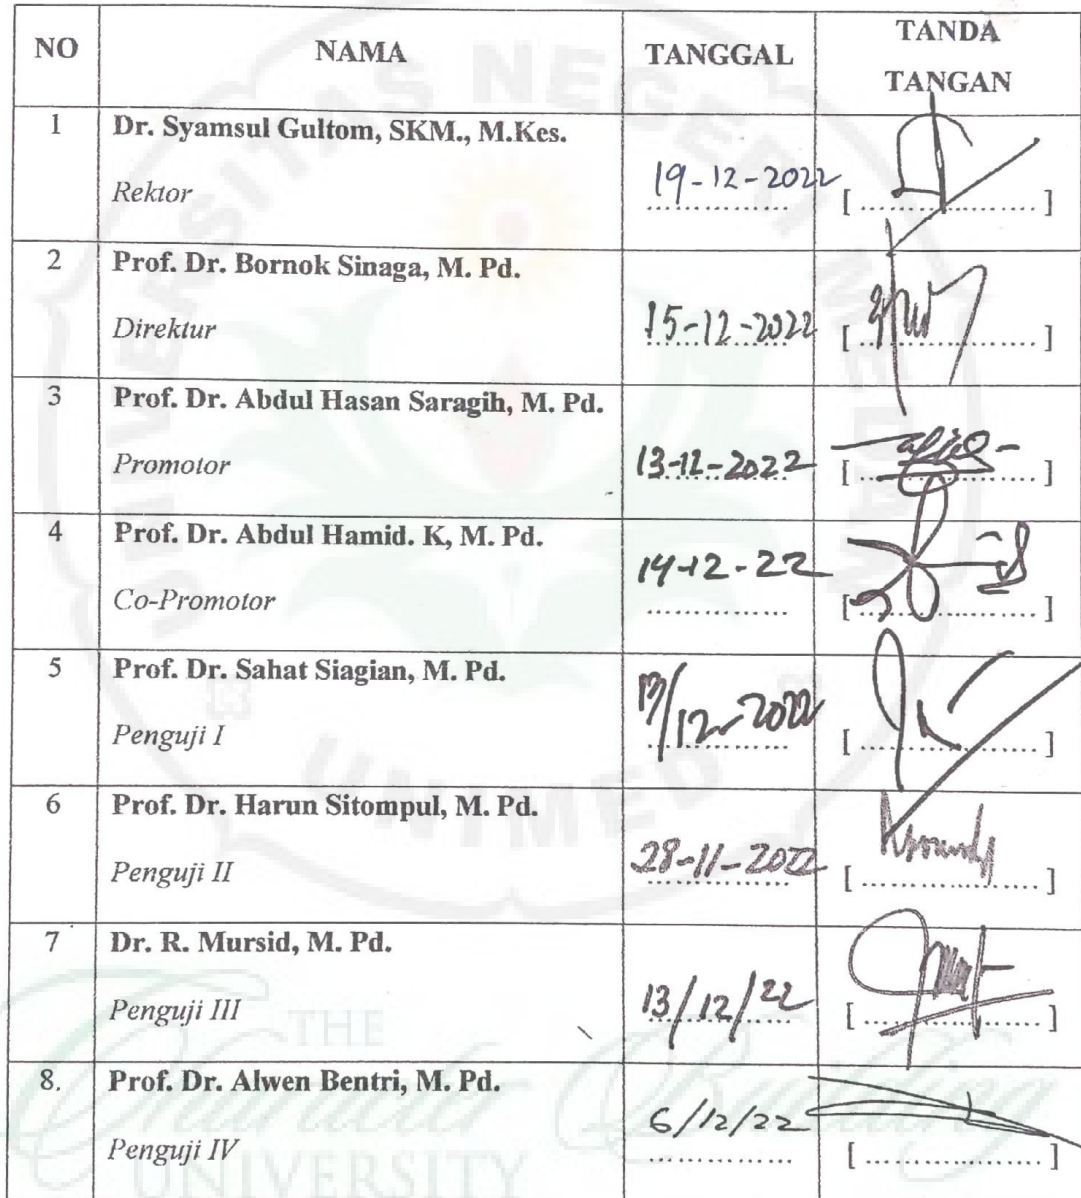 NO NAMA TANGGAL TANDA TANGAN
1 Dr. Syamsul Gultom, SKM., M.Kes.
Rektor 19-12-2022 [ .................... ]
2 Prof. Dr. Bornok Sinaga, M. Pd.
Direktur 15-12-2022 [ .................... ]
3 Prof. Dr. Abdul Hasan Saragih, M. Pd.
Promotor 13-12-2022 [ .................... ]
4 Prof. Dr. Abdul Hamid. K, M. Pd.
14-12-22
Co-Promotor .............. [ .................... ]
5 Prof. Dr. Sahat Siagian, M. Pd.
Penguji I /12-2022 [ .................... ]
6 Prof. Dr. Harun Sitompul, M. Pd.
Penguji II 28-11-2022 [ .................... ]
7 Dr. R. Mursid, M. Pd.
Penguji III 13/12/22 [ .................... ]
8. Prof. Dr. Alwen Bentri, M. Pd.
6/12/22
Penguji IV .............. [ .................... ]
UNIVERSITAS NEGERI MEDAN
UNIMED
THE
Character Building
UNIVERSITY